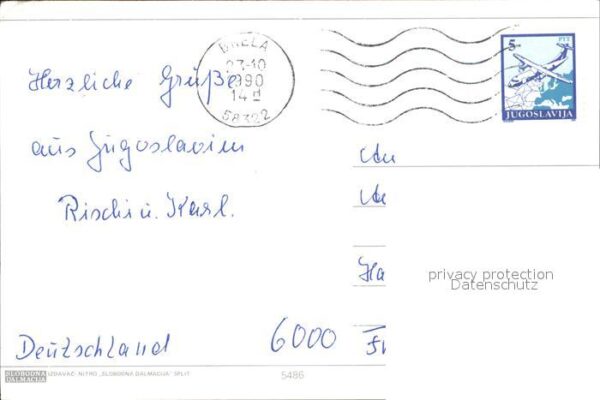 BRELA
23-10
1990
14
58322
5-
PTT
JUGOSLAVIJA
Herzliche Grüße
aus Jugoslavien
Rischi u. Karl.
Ha
privacy protection
Datenschutz
Deutschland
6000
SLOBODNA
DALMACIJA
IZDAVAČ: NITRO „SLOBODNA DALMACIJA" SPLIT
5486